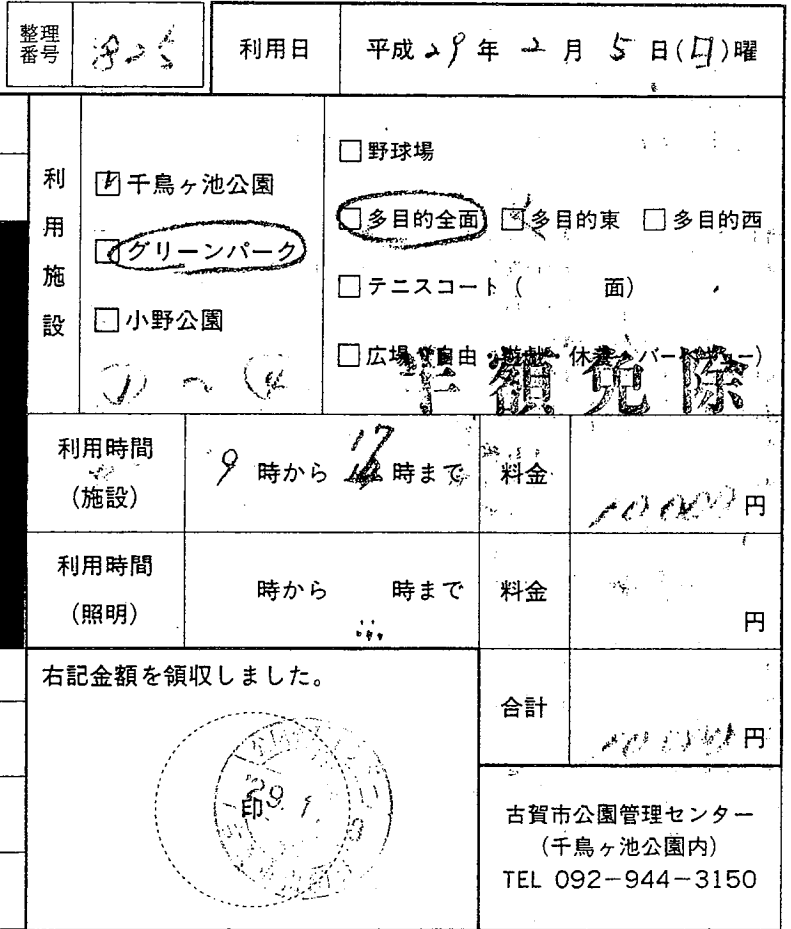 整理番号 825 利用日 平成29年2月5日(日)曜
利用施設
千鳥ヶ池公園
グリーンパーク
小野公園
野球場
多目的全面 多目的東 多目的西
テニスコート( 面)
広場
半額免除
利用時間(施設) 9時から17時まで 料金 10000円
利用時間(照明) 時から 時まで 料金 円
右記金額を領収しました。
印
合計 10000円
古賀市公園管理センター
(千鳥ヶ池公園内)
TEL 092-944-3150